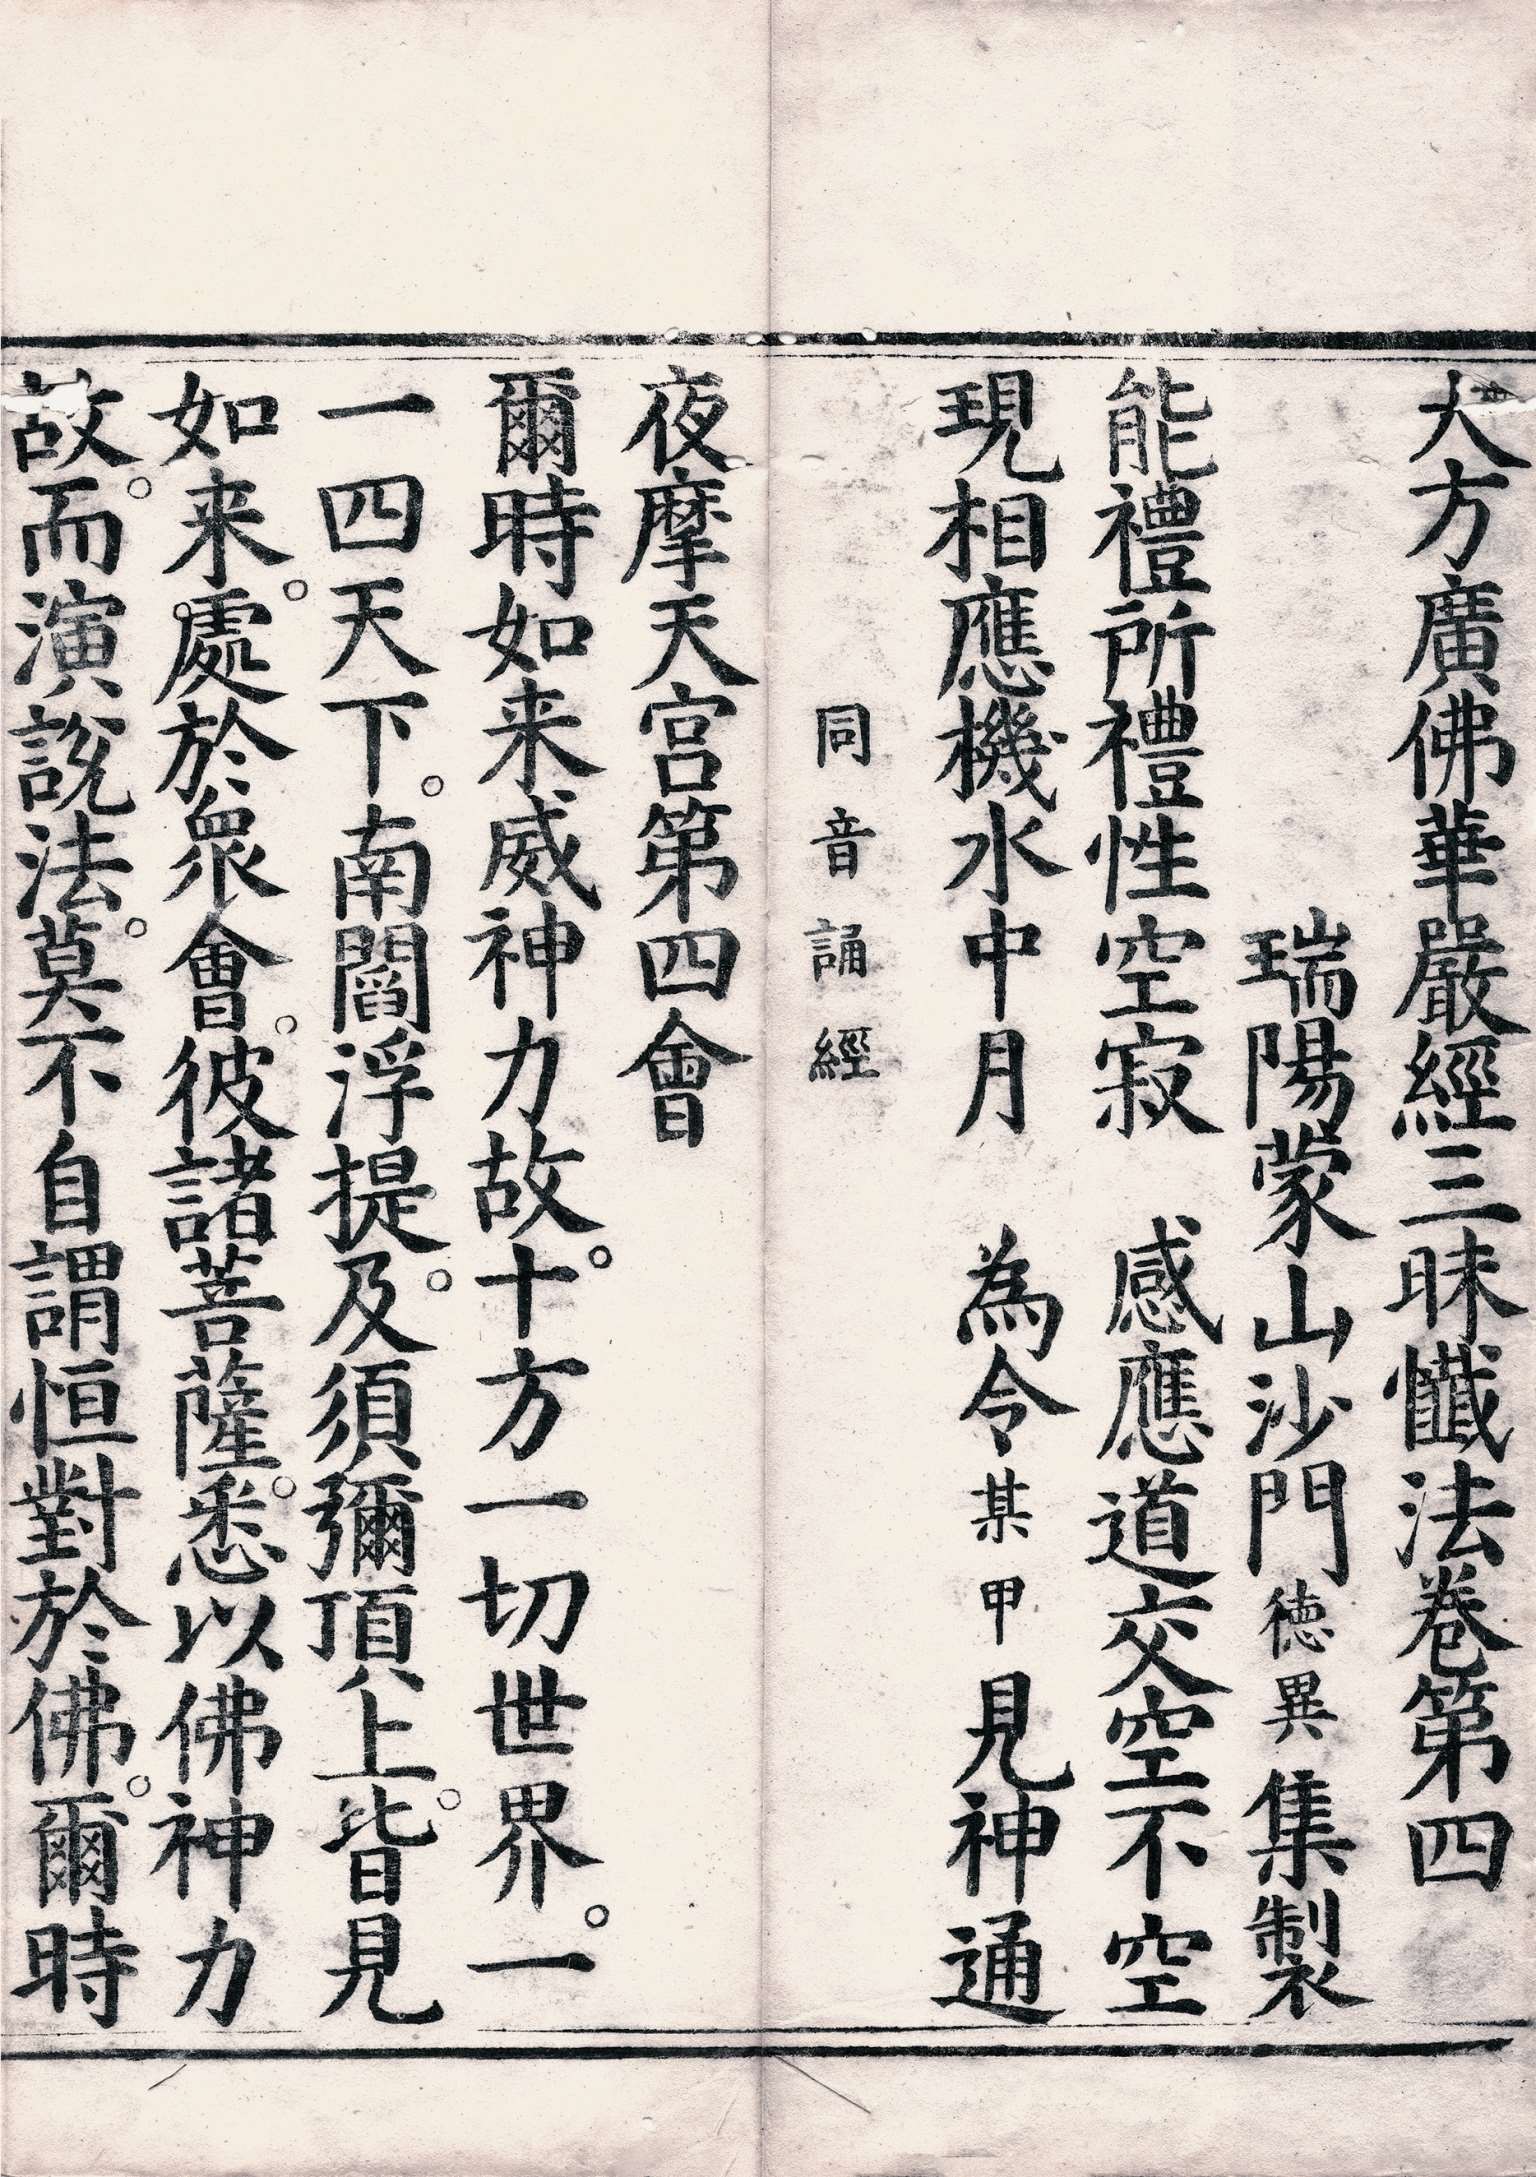 大方廣佛華嚴經三昧懺法卷第四
瑞陽蒙山沙門德異集製
能禮所禮性空寂　感應道交空不空
現相應機水中月　為令某甲見神通
同音誦經
夜摩天宮第四會
爾時如来威神力故。十方一切世界。一
一四天下。南閻浮提。及須彌頂上。皆見
如来。處於眾會。彼諸菩薩。悉以佛神力
故。而演說法。莫不自謂恒對於佛。爾時